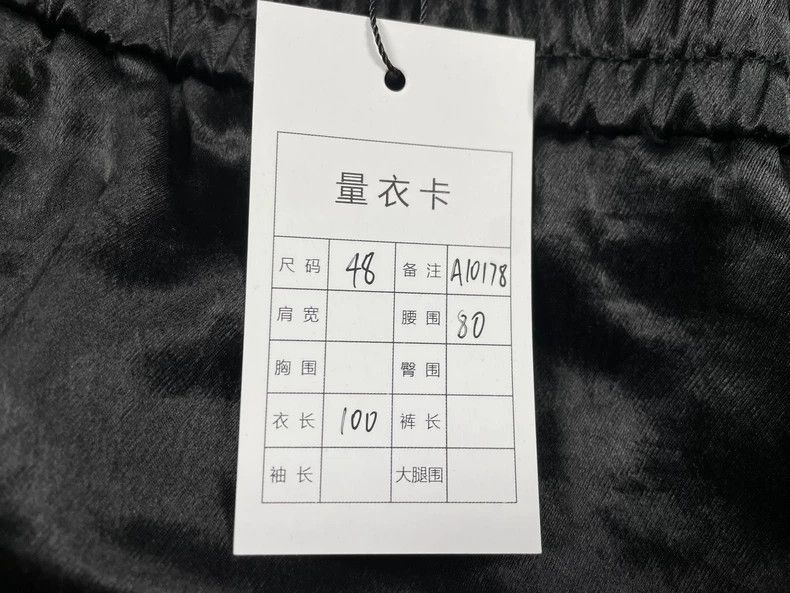 量衣卡
尺码 48 备注 A10178
肩宽 腰围 80
胸围 臀围
衣长 100 裤长
袖长 大腿围